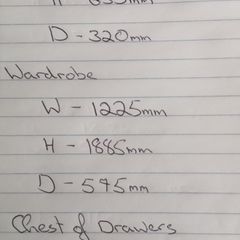 D - 320mm
Wardrobe
W - 1225mm
H - 1885mm
D - 575mm
Chest of Drawers